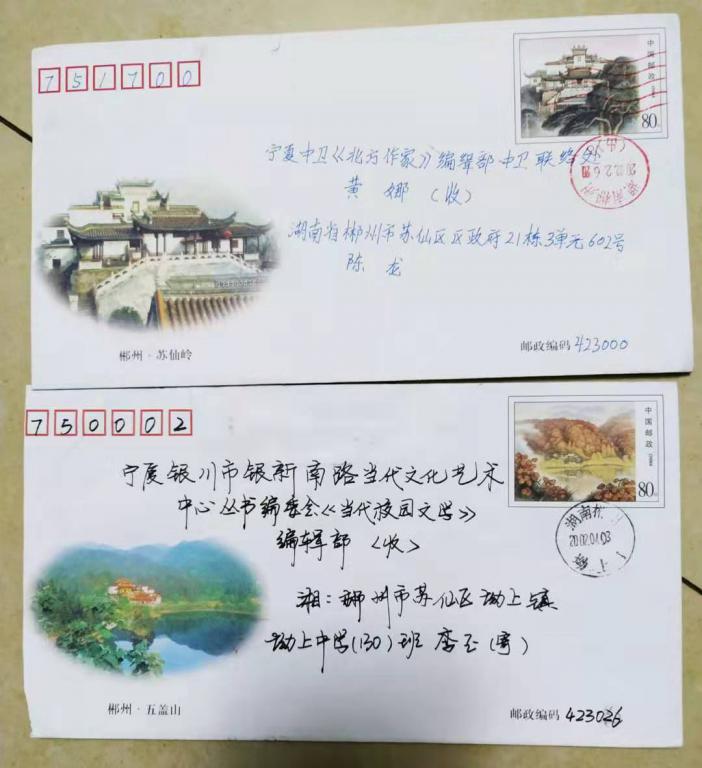 751700
中国邮政
80
宁夏中卫《北方作家》编辑部中卫联络处
黄 娜 (收)
湖南省郴州市苏仙区区政府21栋3单元602号
陈 龙
郴州·苏仙岭
邮政编码 423000
750002
中国邮政
80
宁夏银川市银新南路当代文化艺术
中心丛书编委会《当代校园文学》
编辑部 (收)
湖南
2002.04.03
湘:郴州市苏仙区坳上镇
坳上中学(130)班 李玉(寄)
郴州·五盖山
邮政编码 423026